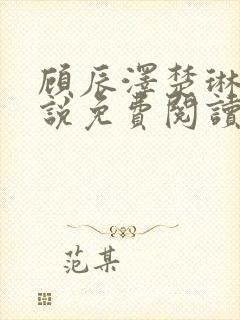 顾辰澤楚琳
說免費閱讀
范某